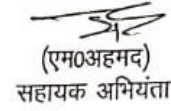 (एम0अहमद)
सहायक अभियंता